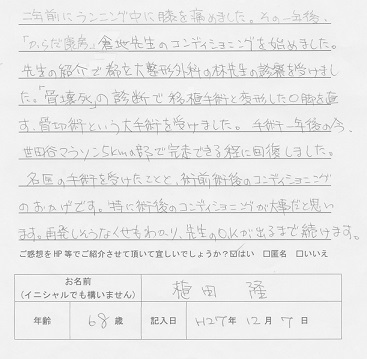 二年前にランニング中に膝を痛めました。その一年後、
「からだ康房」倉地先生のコンディショニングを始めました。
先生の紹介で都立大整形外科の林先生の診察を受けまし
た。「骨壊死」の診断で移植手術と変形したO脚を直
す、骨切術という大手術を受けました。手術一年後の今、
世田谷マラソン5kmの部で完走できる程に回復しました。
名医の手術を受けたことと、術前術後のコンディショニング
のおかげです。特に術後のコンディショニングが大事だと思い
ます。再発しそうなくせもわかり、先生のO.Kが出るまで続けます。
ご感想をHP等でご紹介させて頂いて宜しいでしょうか?☑はい □匿名 □いいえ
お名前
(イニシャルでも構いません) 植田 隆
年齢 68歳 記入日 H27年12月7日